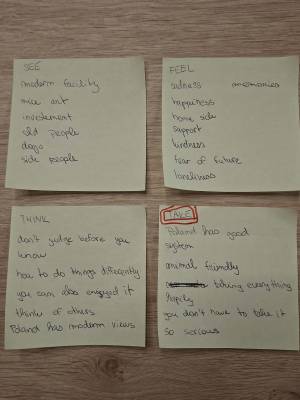 SEE
modern facility
nice art
involvement
old people
dogs
side people
FEEL
sadness memories
happiness
home side
support
kindness
fear of future
loneliness
THINK
don't judge before you
know
how to do things differently
you can also enjoyed it
think of others
Poland has modern views
TAKE
Poland has good
system
animal friendly
taking everything
happily
you don't have to take it
so serious